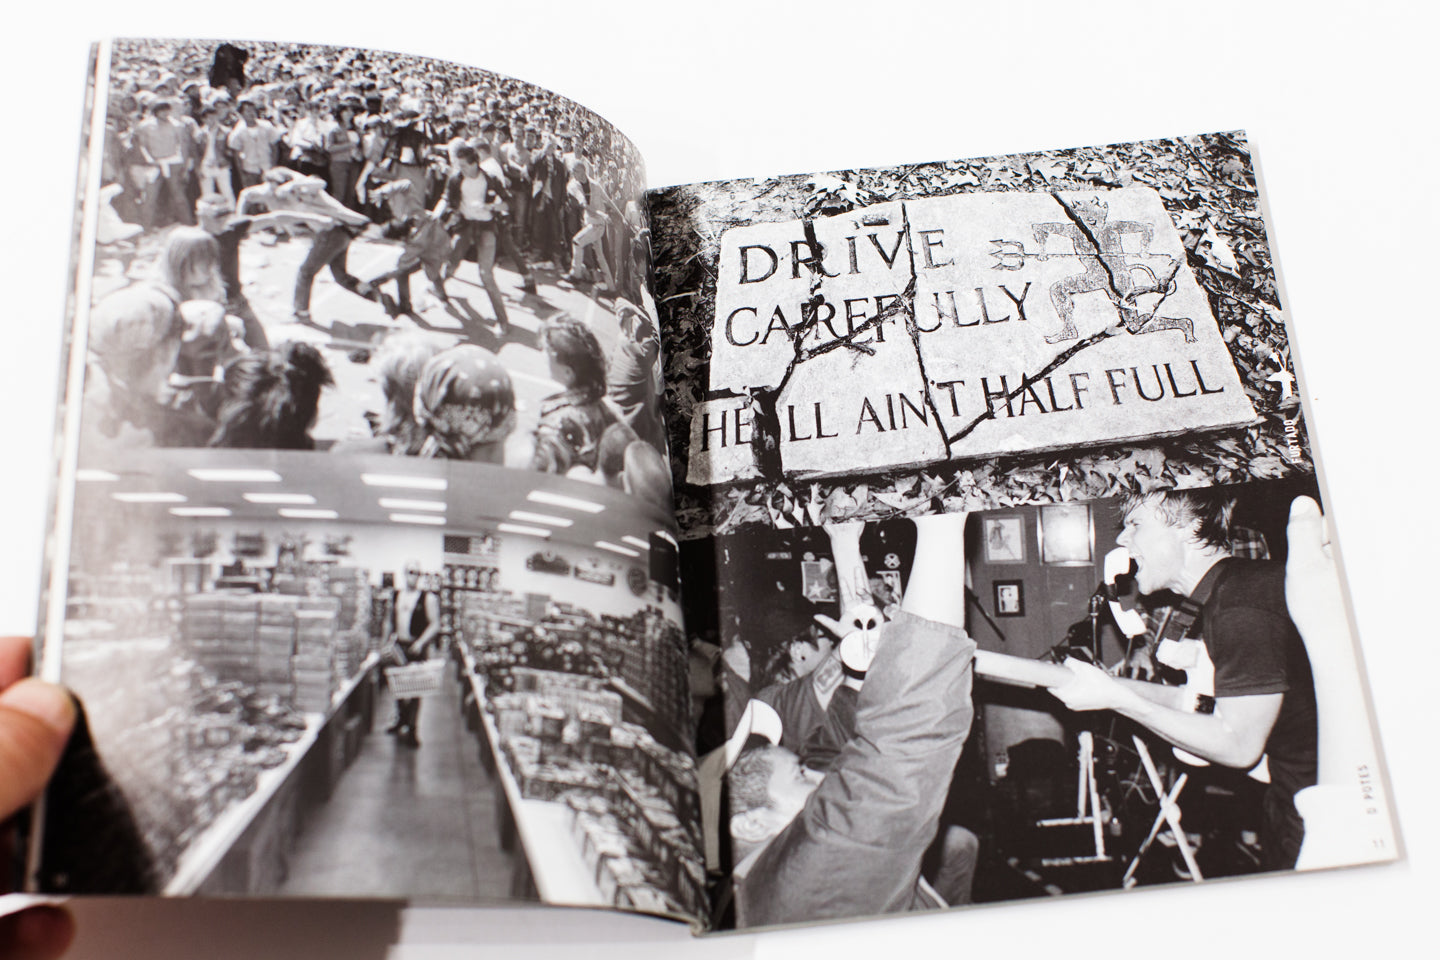 DRIVE
CAREFULLY
HELL AIN'T HALF FULL
FURTADO
D POTES
11